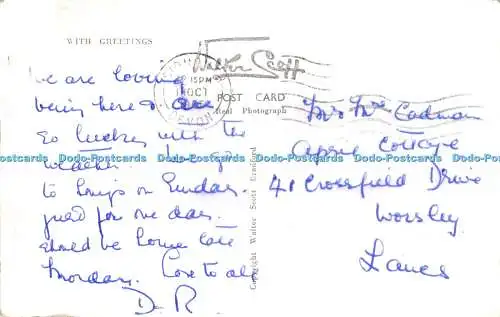 WITH GREETINGS
We are loving
being here & are
so lucky with the
weather
to on Sunday.
for one day.
should be home late
Monday. Love to all
D. R.
15PM
OCT
DEVON
Walter Scott
POST CARD
Real Photograph
Copyright Walter Scott Bradford
Mr & Mrs Cadman
Cottage
41 Crossfield Drive
Worsley
Lancs
Dodo-Postcards Dodo-Postcards Dodo-Postcards Dodo-Postcards Dodo-Postcards Dodo-Postcards Dodo-Postcards